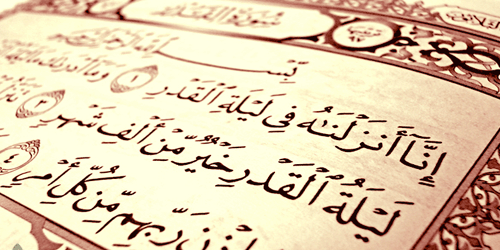 سُورَةُ القَدْرِ
بِسْمِ ٱللَّهِ ٱلرَّحْمَٰنِ ٱلرَّحِيمِ
إِنَّآ أَنزَلْنَٰهُ فِى لَيْلَةِ ٱلْقَدْرِ ١ وَمَآ أَدْرَىٰكَ
لَيْلَةُ ٱلْقَدْرِ خَيْرٌ مِّنْ أَلْفِ شَهْرٍ ٣
رَبِّهِم مِّن كُلِّ أَمْرٍ ٤